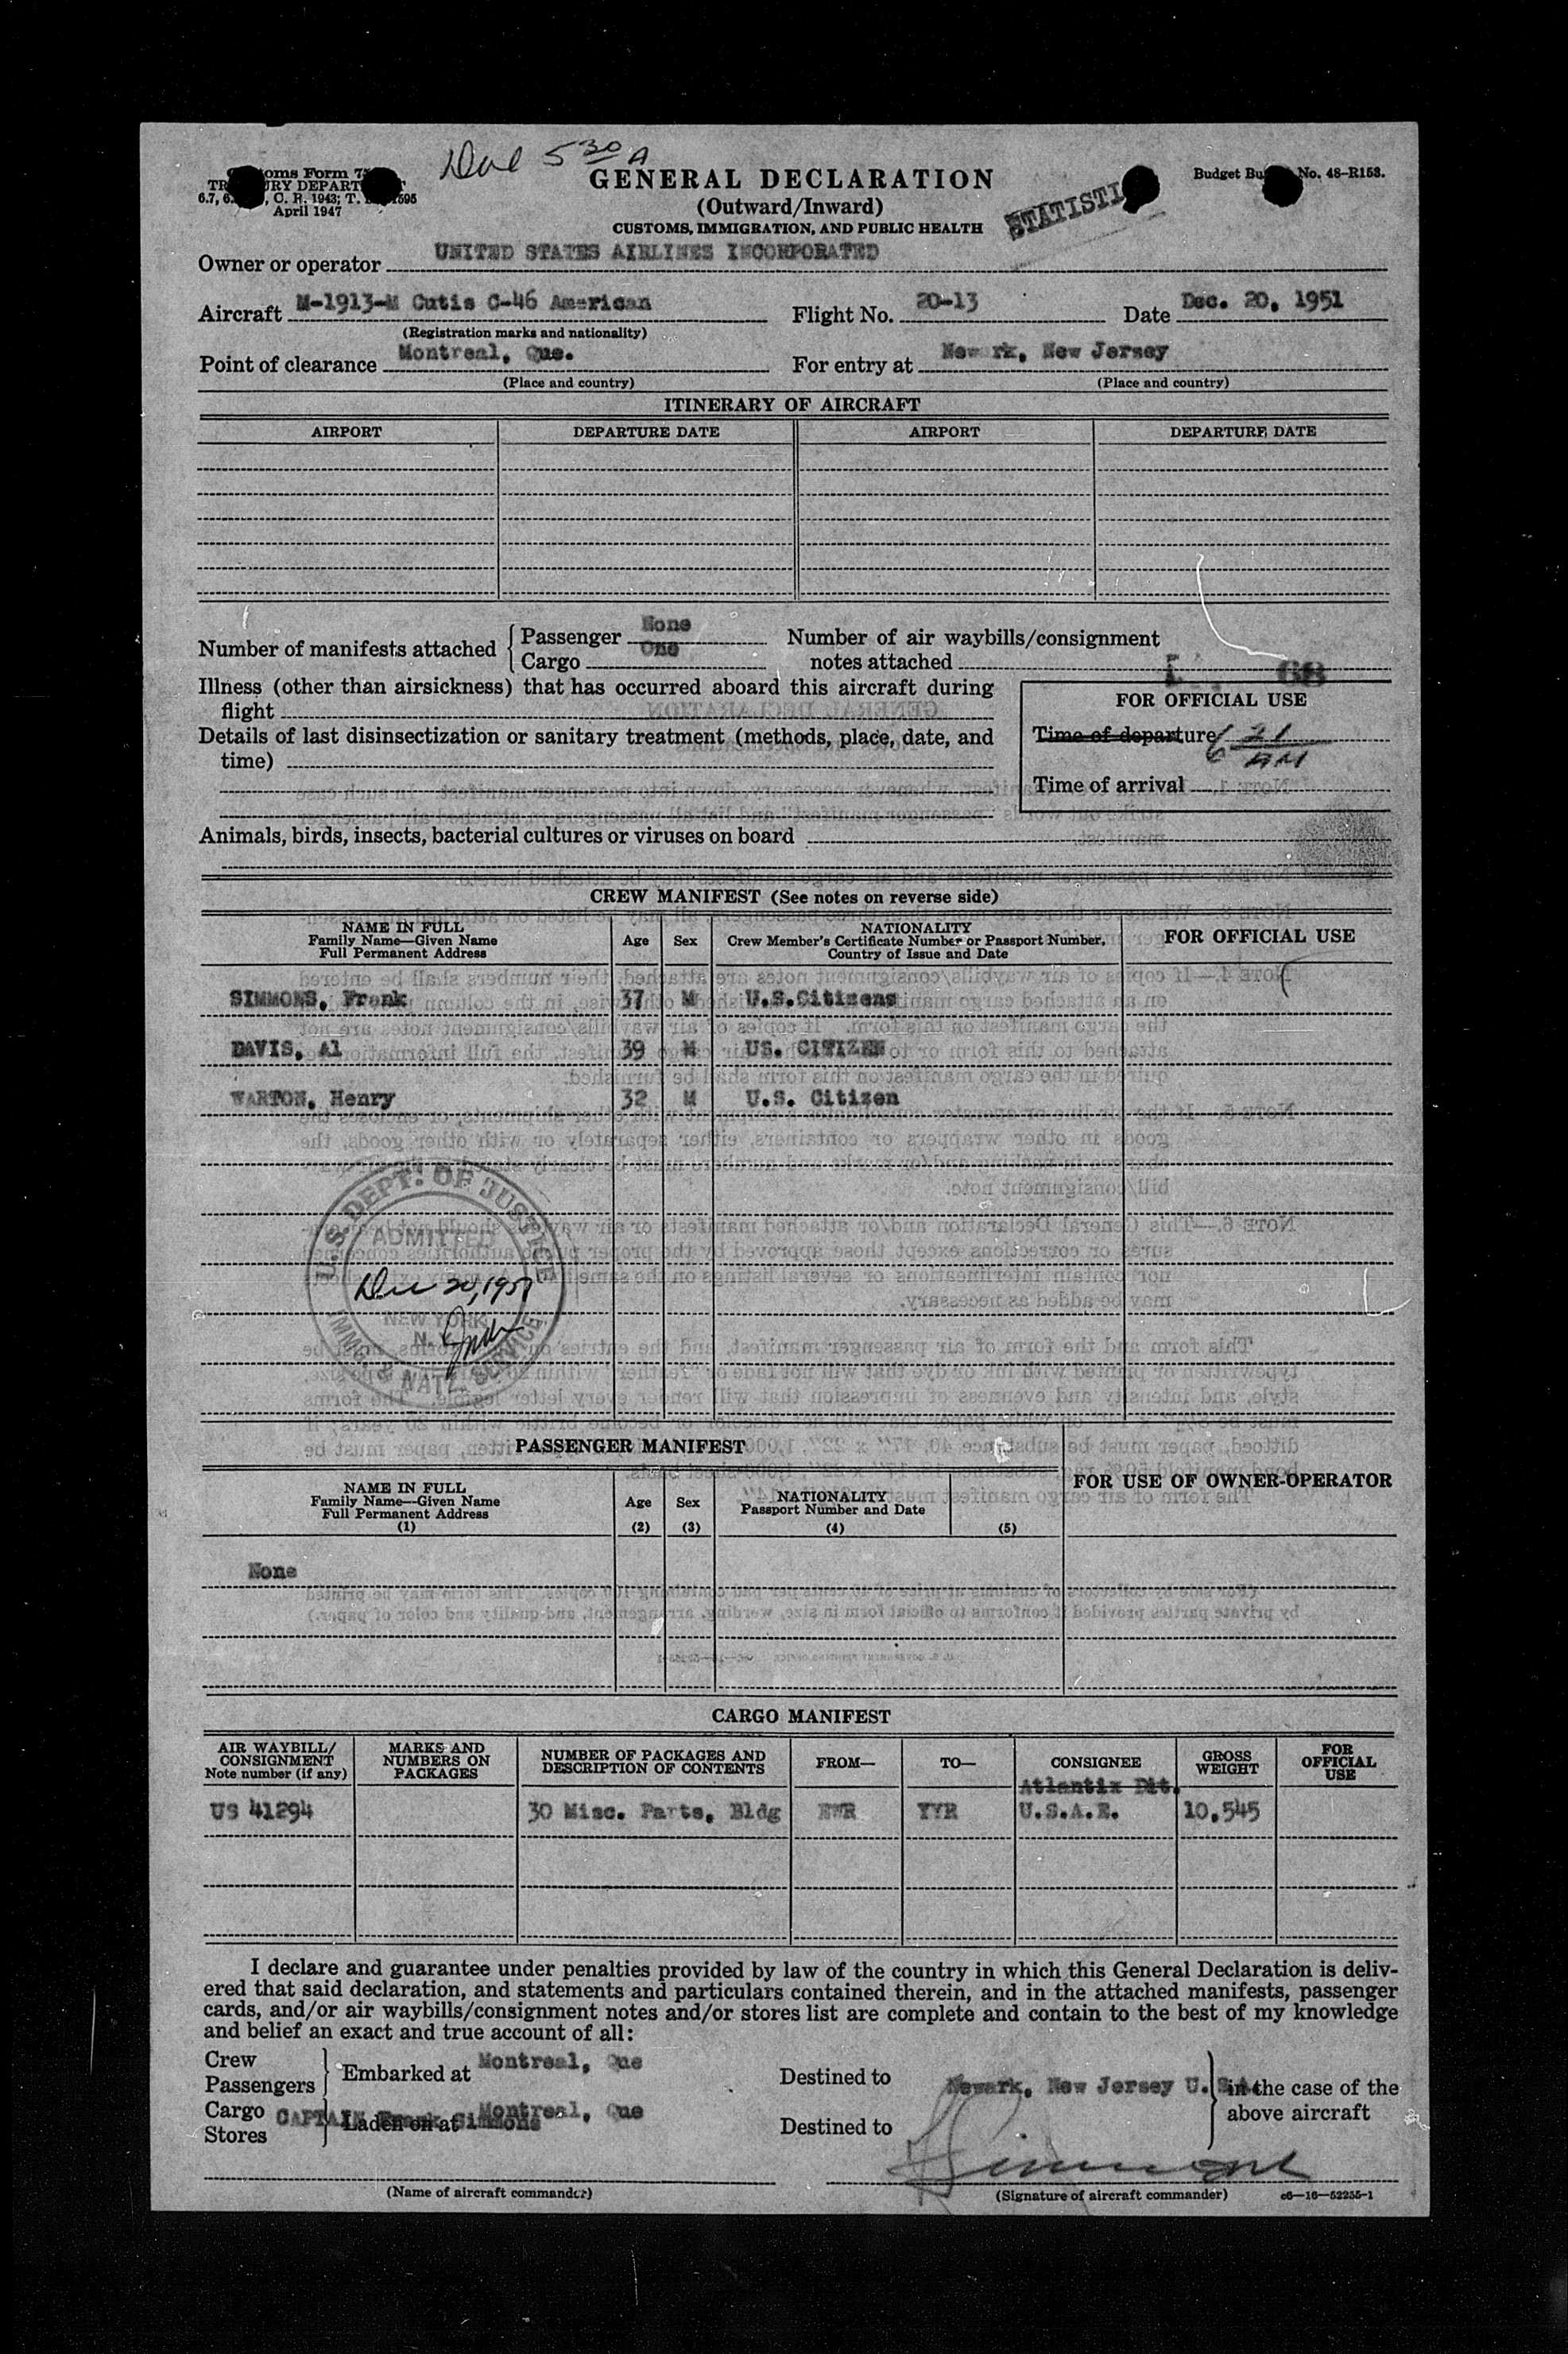 Due 5 30 A
oms Form 7
TR URY DEPART T
6.7, 6. , C. R. 1943; T. 1595
April 1947
GENERAL DECLARATION
(Outward/Inward)
CUSTOMS, IMMIGRATION, AND PUBLIC HEALTH
STATISTI
Budget Bu No. 48-R153.
Owner or operator UNITED STATES AIRLINES INCORPORATED
Aircraft N-1913-M Cutis C-46 American Flight No. 20-13 Date Dec. 20, 1951
(Registration marks and nationality)
Point of clearance Montreal, Que. For entry at Newark, New Jersey
(Place and country) (Place and country)
ITINERARY OF AIRCRAFT
AIRPORT DEPARTURE DATE AIRPORT DEPARTURE DATE
Number of manifests attached Passenger None Number of air waybills/consignment
Cargo One notes attached
Illness (other than airsickness) that has occurred aboard this aircraft during
flight
FOR OFFICIAL USE
Details of last disinsectization or sanitary treatment (methods, place, date, and
time)
Time of departure 6 21
AM
Time of arrival
Animals, birds, insects, bacterial cultures or viruses on board
CREW MANIFEST (See notes on reverse side)
NAME IN FULL
Family Name—Given Name
Full Permanent Address
Age Sex
NATIONALITY
Crew Member's Certificate Number or Passport Number,
Country of Issue and Date
FOR OFFICIAL USE
SIMMONS, Frank 37 M U.S.Citizens
DAVIS, Al 39 M US. CITIZEN
WARTON, Henry 32 M U.S. Citizen
U.S. DEPT. OF JUSTICE
ADMITTED
Dec 20, 1951
NEW YORK
N.
IMMG. & NATZ. SERVICE
PASSENGER MANIFEST
NAME IN FULL
Family Name—Given Name
Full Permanent Address
(1)
Age
(2)
Sex
(3)
NATIONALITY
Passport Number and Date
(4) (5)
FOR USE OF OWNER-OPERATOR
None
CARGO MANIFEST
AIR WAYBILL/
CONSIGNMENT
Note number (if any)
MARKS AND
NUMBERS ON
PACKAGES
NUMBER OF PACKAGES AND
DESCRIPTION OF CONTENTS
FROM—
TO—
CONSIGNEE
GROSS
WEIGHT
FOR
OFFICIAL
USE
Atlantix Dit.
US 41294 30 Misc. Parts, Bldg EWR YYR U.S.A.E. 10,545
I declare and guarantee under penalties provided by law of the country in which this General Declaration is deliv-
ered that said declaration, and statements and particulars contained therein, and in the attached manifests, passenger
cards, and/or air waybills/consignment notes and/or stores list are complete and contain to the best of my knowledge
and belief an exact and true account of all:
Crew
Passengers
Embarked at Montreal, Que Destined to Newark, New Jersey U.S.A. in the case of the
above aircraft
Cargo
Stores
Laden on at Montreal, Que Destined to
CAPTAIN Frank Simmons
Simmons
(Name of aircraft commander) (Signature of aircraft commander) c6—16—52255-1